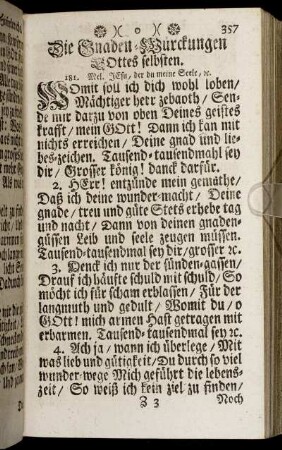 357
Die Gnaden-Würckungen
GOttes selbsten.
181. Mel. JEsu, der du meine Seele, ꝛc.
WOmit soll ich dich wohl loben/
Mächtiger herr zebaoth/ Sen-
de mir darzu von oben Deines geistes
krafft/ mein GOtt! Dann ich kan mit
nichts erreichen/ Deine gnad und lie-
bes-zeichen. Tausend-tausendmahl sey
dir/ Grosser könig! danck darfür.
2. HErr! entzünde mein gemüthe/
Daß ich deine wunder-macht/ Deine
gnade/ treu und güte Stets erhebe tag
und nacht/ Dann von deinen gnaden-
güssen Leib und seele zeugen müssen.
Tausend-tausendmal sey dir/ grosser ꝛc.
3. Denck ich nur der sünden-gassen/
Drauf ich häuffte schuld mit schuld/ So
möcht ich für scham erblassen/ Für der
langmuth und gedult/ Womit du/ o
GOtt! mich armen Hast getragen mit
erbarmen. Tausend-tausendmal sey ꝛc.
4. Ach ja/ wann ich überlege/ Mit
was lieb und gütigkeit/ Du durch so viel
wunder-wege Mich geführt die lebens-
zeit/ So weiß ich kein ziel zu finden/
Z 3 Noch